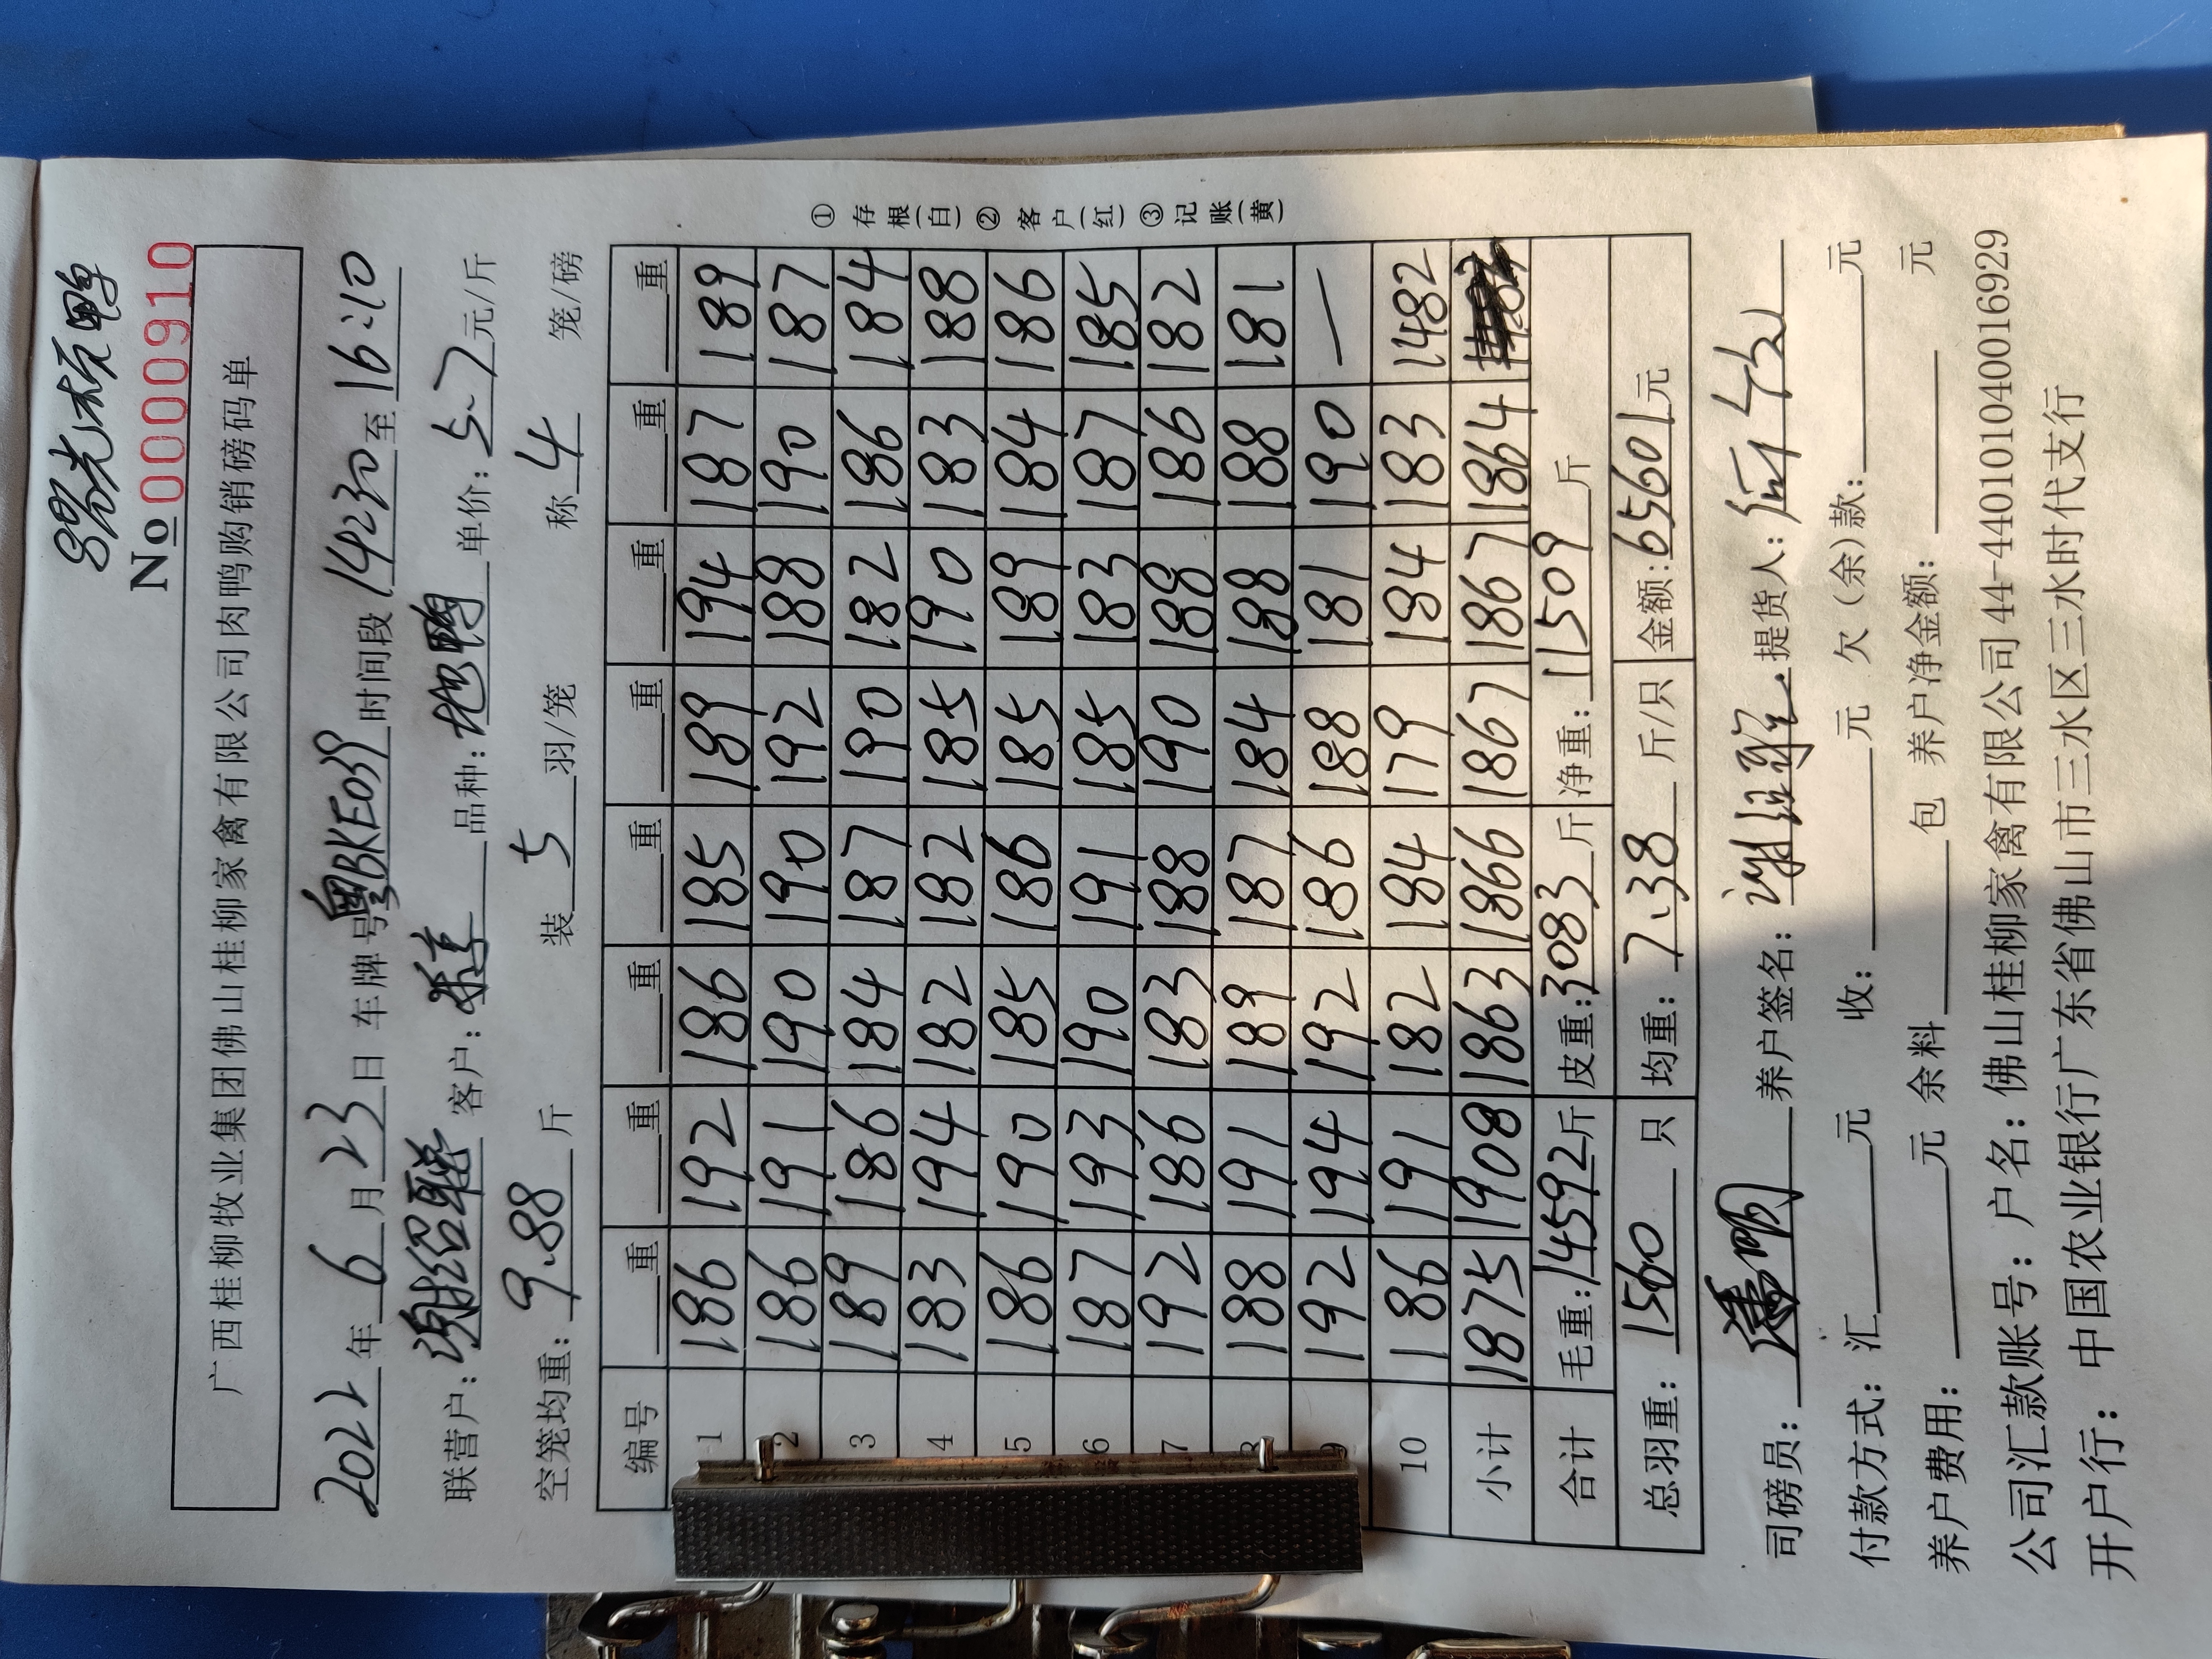 No 0000910
广西桂柳牧业集团佛山桂柳家禽有限公司肉鸭购销磅码单
2022年6月23日 车牌号粤BKE039时间段14:30至16:10
联营户：谢绍联 客户： 品种：地鸭 单价：5.7元/斤
空笼均重：9.88斤 装5羽/笼 称4笼/磅
编号 重 重 重 重 重 重 重 重
1 186 192 186 185 189 194 187 189
2 186 191 190 190 192 188 190 187
3 189 186 184 187 190 182 186 184
4 183 194 182 182 185 190 183 188
5 186 190 185 186 185 189 184 186
6 187 193 190 191 185 183 187 185
7 192 186 183 188 190 188 186 182
8 188 191 189 187 184 188 188 181
9 192 194 192 186 188 181 190 —
10 186 191 182 184 179 184 183 1482
小计 1875 1908 1863 1866 1867 1867 1864
合计 毛重：14592斤 皮重：3083斤 净重：11509斤
总羽重：1560只 均重：7.38斤/只 金额：65601元
①存根(白)②客户(红)③记账(黄)
司磅员： 养户签名： 提货人：
付款方式：汇 元 收： 元 欠（余）款： 元
养户费用： 元 余料 包 养户净金额： 元
公司汇款账号：户名：佛山桂柳家禽有限公司 44-440101040016929
开户行：中国农业银行广东省佛山市三水区三水时代支行